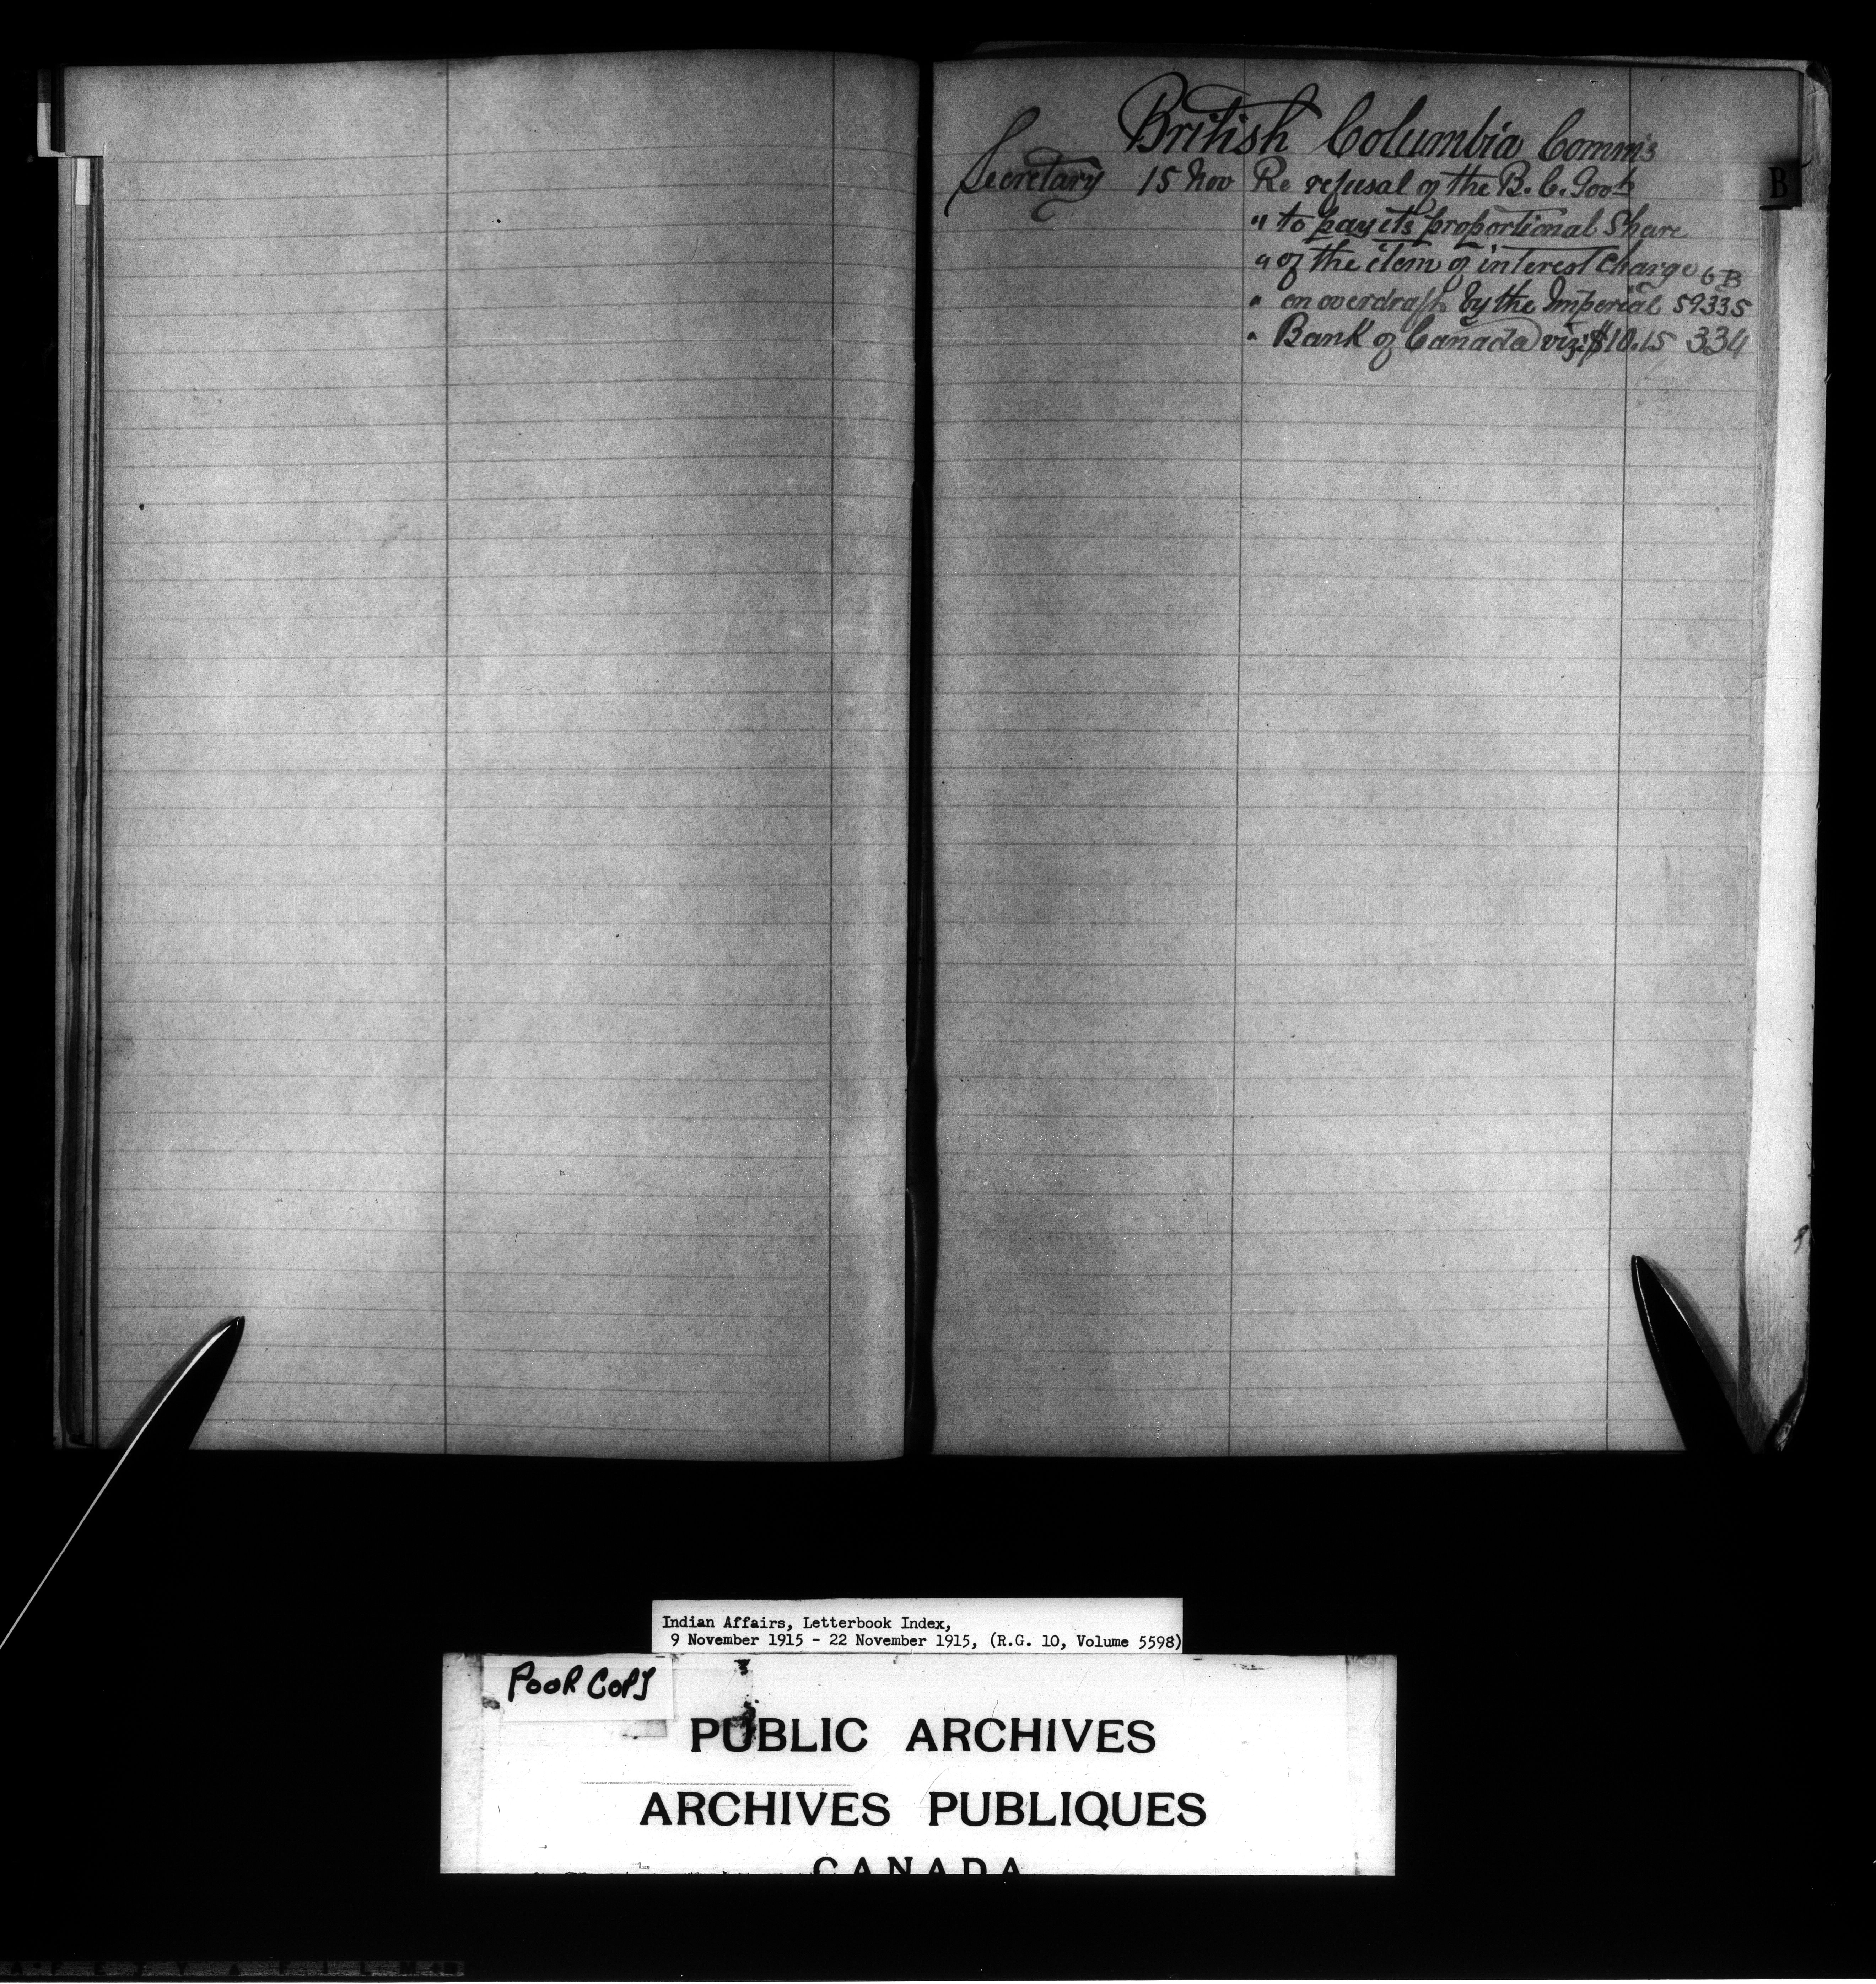 British Columbia Comm's
Secretary 15 Nov Re refusal of the B. C. Govt
" to pay its proportional Share
" of the item of interest Charge 6B
" on overdraft by the Imperial 59335
" Bank of Canada viz: $10.15 334
B
Indian Affairs, Letterbook Index,
9 November 1915 - 22 November 1915, (R.G. 10, Volume 5598)
POOR COPY
PUBLIC ARCHIVES
ARCHIVES PUBLIQUES
CANADA